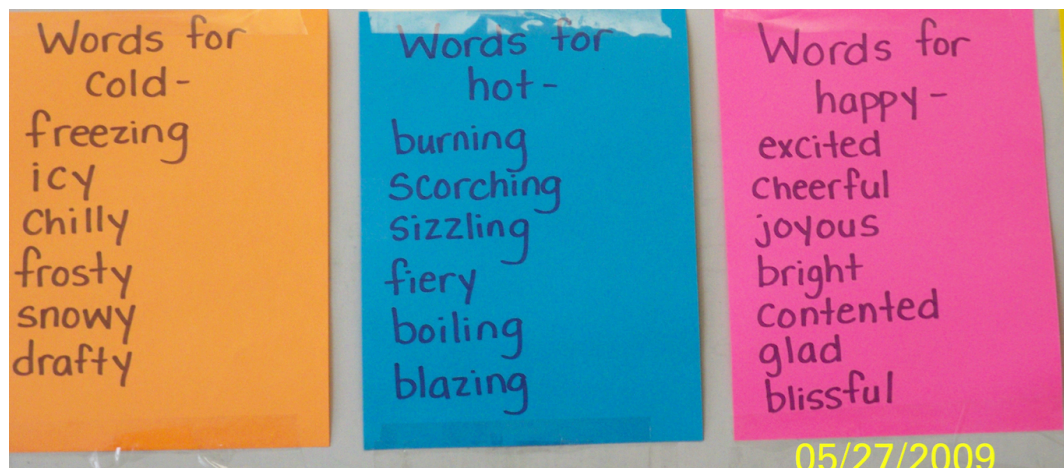 Words for
cold-
freezing
icy
chilly
frosty
snowy
drafty
Words for
hot-
burning
scorching
sizzling
fiery
boiling
blazing
Words for
happy-
excited
cheerful
joyous
bright
contented
glad
blissful
05/27/2009